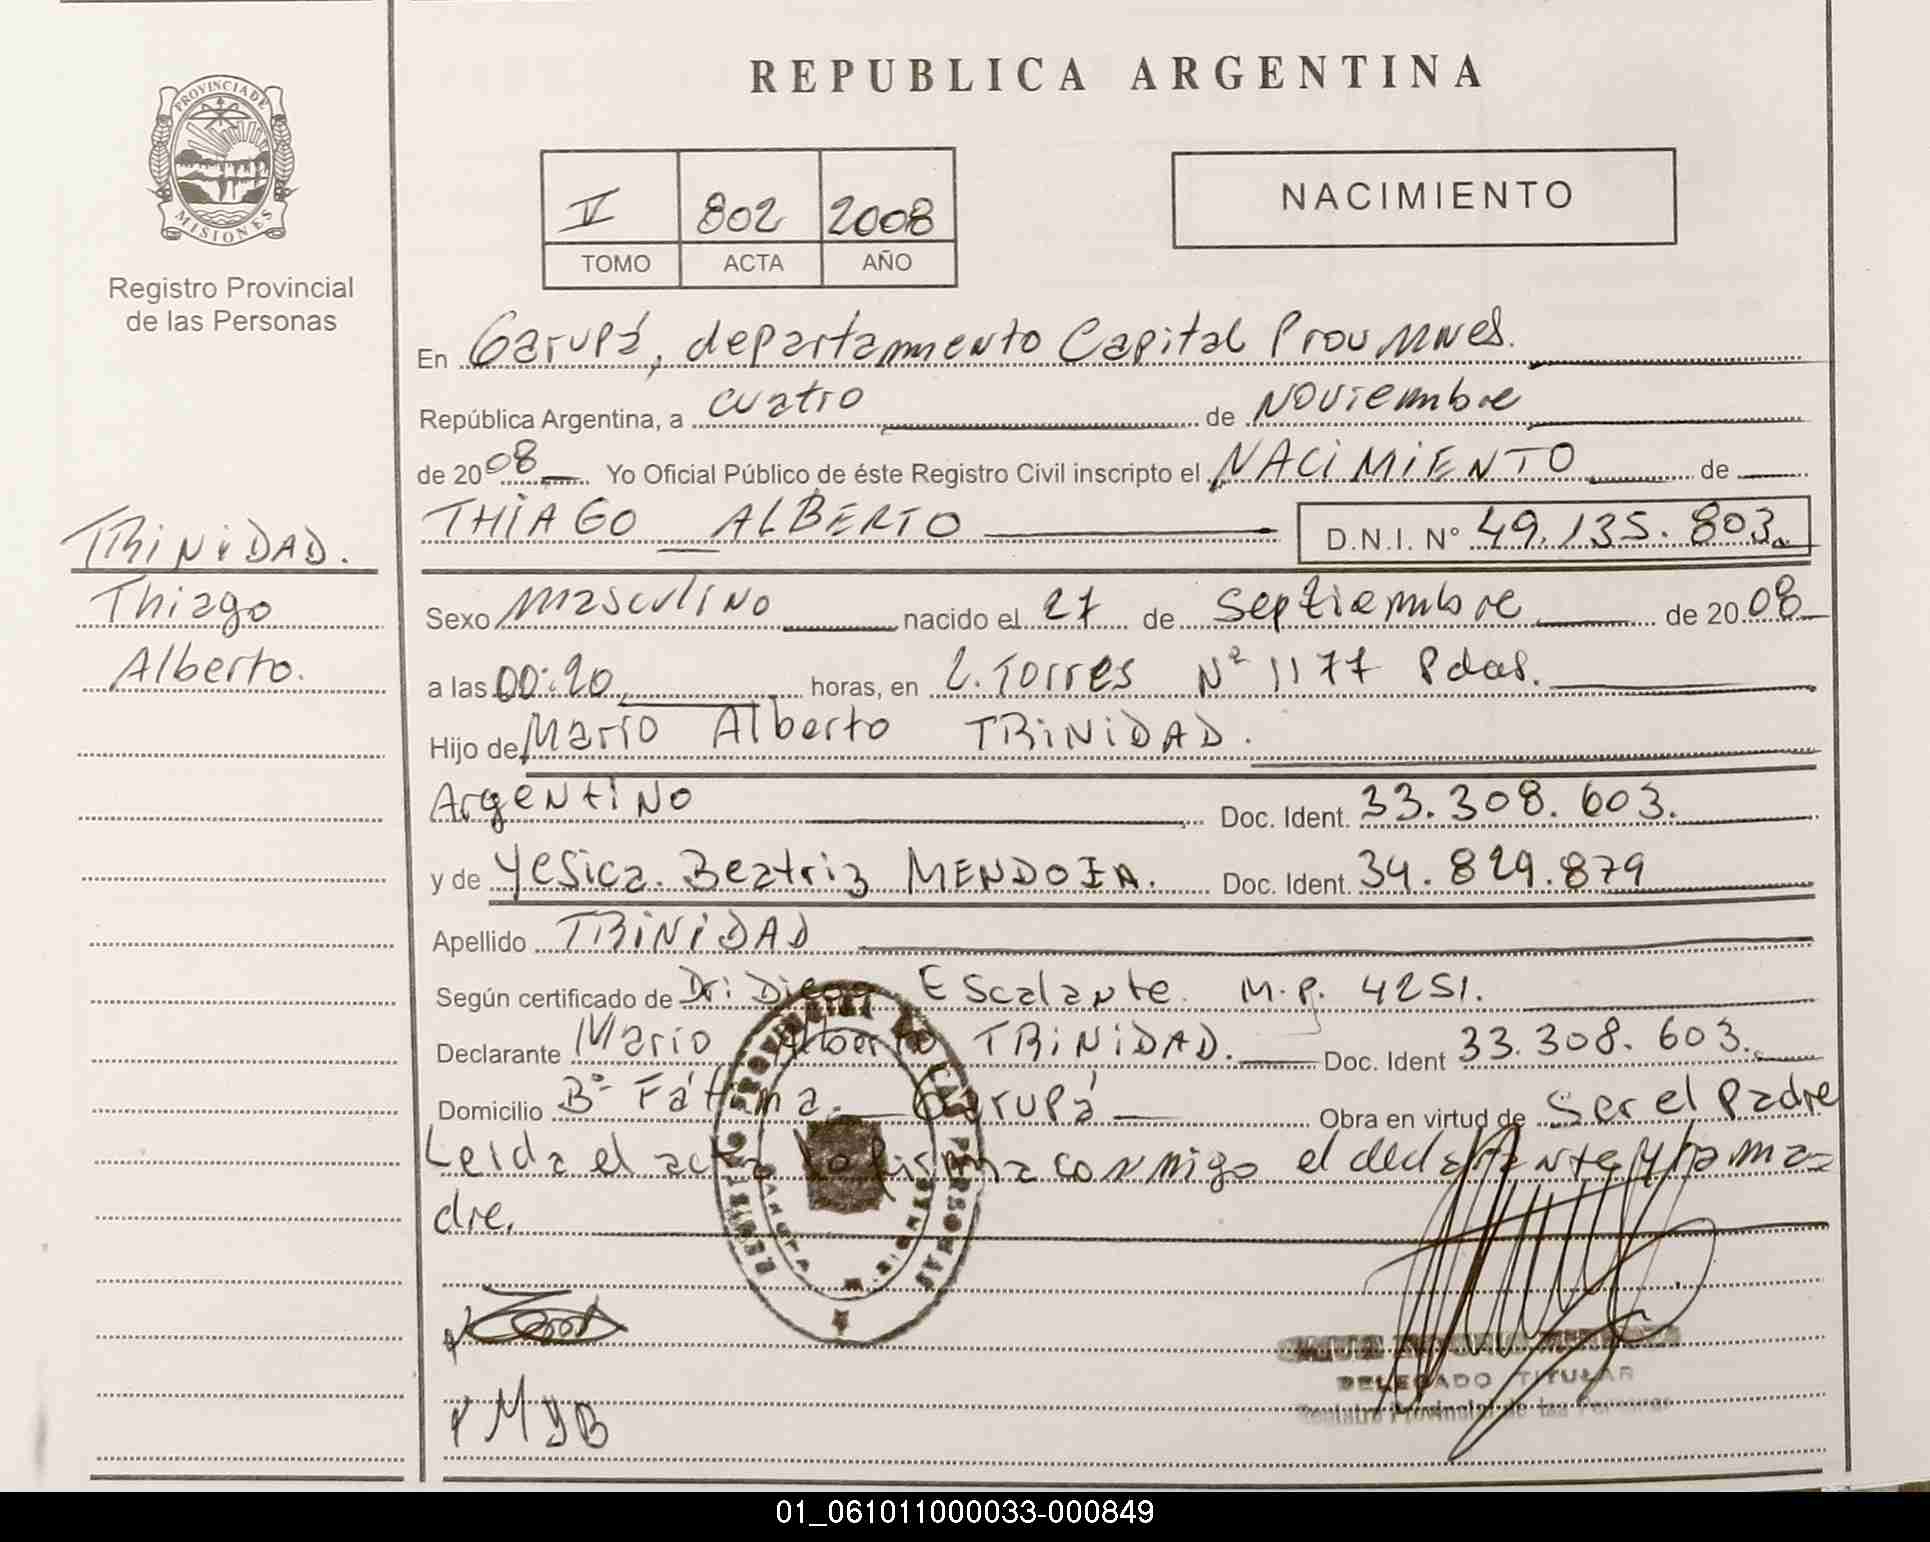 REPUBLICA ARGENTINA
PROVINCIA DE
MISIONES
Registro Provincial
de las Personas
V 802 2008
TOMO ACTA AÑO
NACIMIENTO
En Garupá, departamento Capital Prov Mnes.
República Argentina, a cuatro de Noviembre
de 2008 Yo Oficial Público de éste Registro Civil inscripto el NACIMIENTO de
THIAGO ALBERTO D.N.I. N° 49.135.803
TRINIDAD.
Thiago
Alberto.
Sexo Masculino nacido el 27 de Septiembre de 2008
a las 00:20 horas, en L. Torres Nº 1177 Pdas.
Hijo de Mario Alberto TRINIDAD.
Argentino Doc. Ident. 33.308.603.
y de Yesica Beatriz MENDOZA. Doc. Ident. 34.829.879
Apellido TRINIDAD
Según certificado de Dr: Diego Escalante. M.P. 4251.
Declarante Mario Alberto TRINIDAD. Doc. Ident 33.308.603.
Domicilio Bº Fátima. Garupá Obra en virtud de Ser el Padre
Leida el acta la firma conmigo el declarante y la ma-
dre.
MYB
DELEGADO TITULAR
Registro Provincial de las Personas
01_061011000033-000849